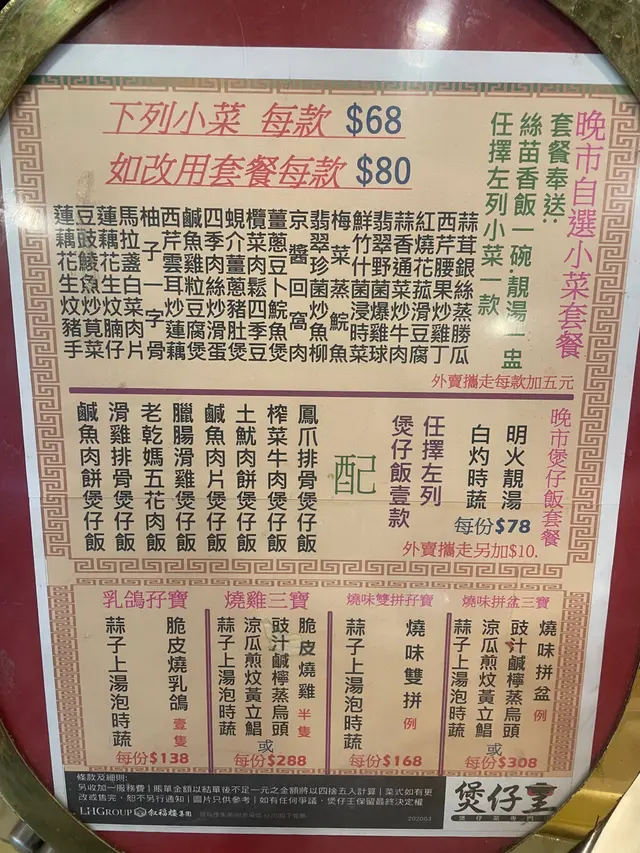 晚市自選小菜套餐
套餐奉送:
絲苗香飯一碗.靚湯一盅
任擇左列小菜一款
下列小菜 每款 $68
如改用套餐每款 $80
蒜茸銀絲蒸勝瓜
西芹腰果炒雞丁
紅燒花菰滑豆腐
蒜香通菜炒牛肉
翡翠野菌爆雞球
鮮竹什菌浸時菜
梅菜蒸鯇魚
翡翠珍菌炒魚柳
京醬回窩肉
薑蔥豆卜鯇魚煲
欖菜肉鬆四季豆
蜆介薑蔥豬肚煲
四季肉絲炒滑蛋
鹹魚雞粒豆腐煲
西芹雲耳炒蓮藕
柚子一字骨
馬拉盞白菜肉片
蓮藕花生炆腩仔
豆豉鯪魚炒莧菜
蓮藕花生炆豬手
外賣攜走每款加五元
晚市煲仔飯套餐
明火靚湯
白灼時蔬
每份$78
任擇左列
煲仔飯壹款
外賣攜走另加$10.
配
鳳爪排骨煲仔飯
榨菜牛肉煲仔飯
土魷肉餅煲仔飯
鹹魚肉片煲仔飯
臘腸滑雞煲仔飯
老乾媽五花肉飯
滑雞排骨煲仔飯
鹹魚肉餅煲仔飯
燒味拼盆三寶
燒味拼盆 例
豉汁鹹檸蒸烏頭
或
涼瓜煎炆黃立鯧
蒜子上湯泡時蔬
每份$308
燒味雙拼孖寶
燒味雙拼 例
蒜子上湯泡時蔬
每份$168
燒雞三寶
脆皮燒雞 半隻
豉汁鹹檸蒸烏頭
或
涼瓜煎炆黃立鯧
蒜子上湯泡時蔬
每份$288
乳鴿孖寶
脆皮燒乳鴿 壹隻
蒜子上湯泡時蔬
每份$138
條款及細則:
另收加一服務費 | 賬單金額以結單後不足一元之金額將以四捨五入計算 | 菜式如有更
改或售完,恕不另行通知 | 圖片只供參考 | 如有任何爭議,煲仔王保留最終決定權
LHGROUP 敘福樓集團
煲仔王
煲仔菜專門